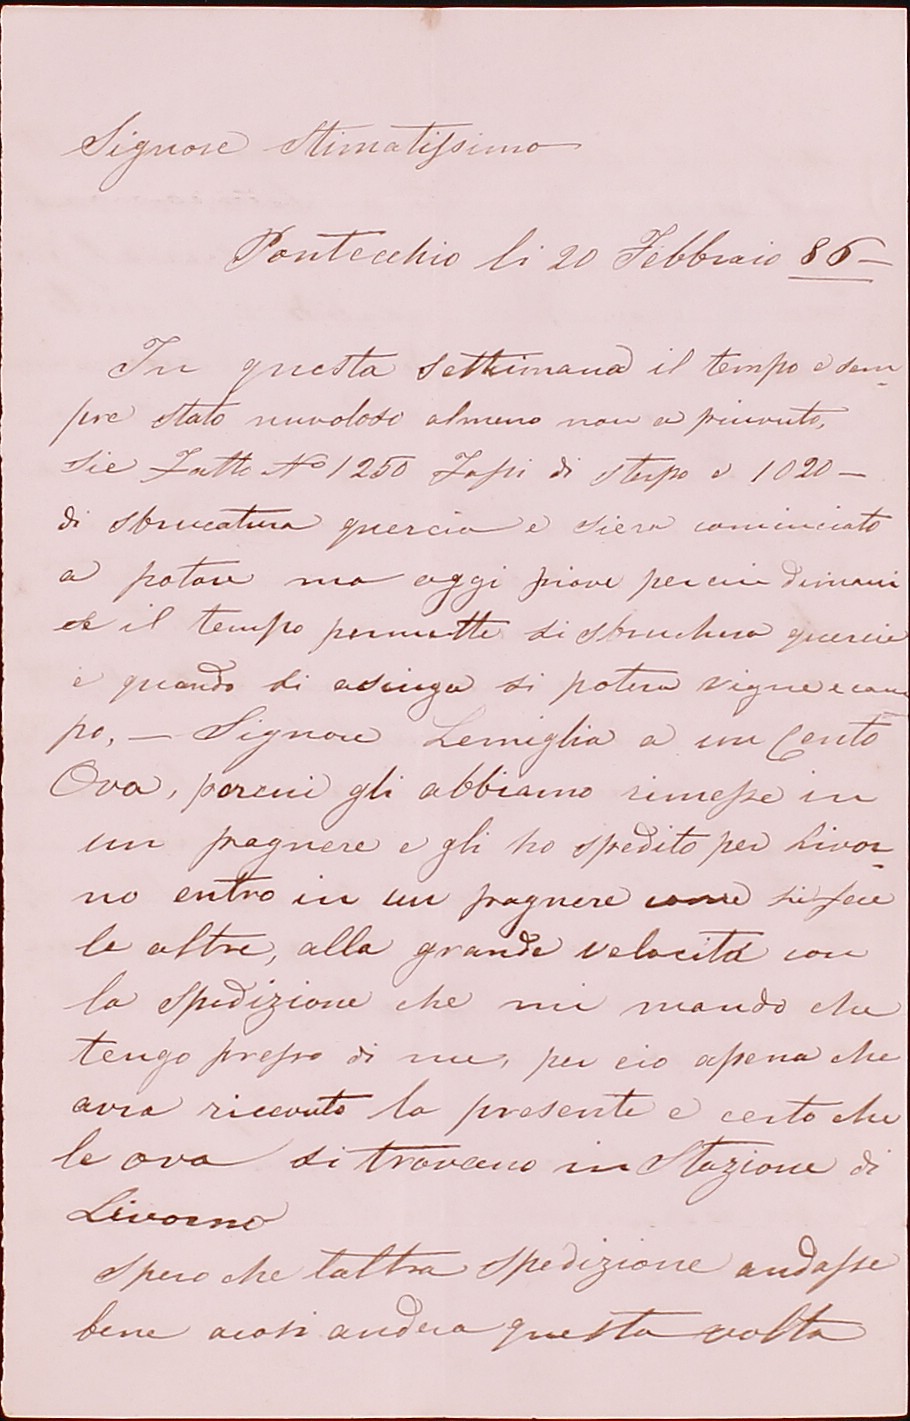 Signore Stimatissimo
Pontecchio li 20 Febbraio 86 -
In questa settimana il tempo e sem
pre stato nuvoloso almeno non a piuvuto,
sie Fatto No 1250 Fassi di sterpo e 1020 -
di sbrucatura quercia e siera cominciato
a potare ma oggi piove percui dimani
se il tempo permette si sbruchera quercie
e quando si asciuga si potera vigne e cam
po, - Signore a un Cento
Ova, percui gli abbiamo rimesse in
un pagnere e gli ho spedito per Livor
no entro in un pagnere come si fece
le altre, alla grande velocità con
la spedizione che mi mando che
tengo presso di me, per cio apena che
avra ricevuto la presente e certo che
le ova si trovano in Stazione di
Livorno
spero che laltra spedizione andasse
bene acosi andera questa volta